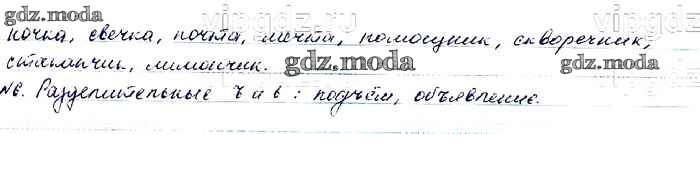 gdz.moda
vipgdz
почка, свечка, почта, мечта, помощник, скворечник,
стаканчик, лимончик. gdz.moda gdz.moda
№6. Разделительные ъ и ь : подъём, объявление.